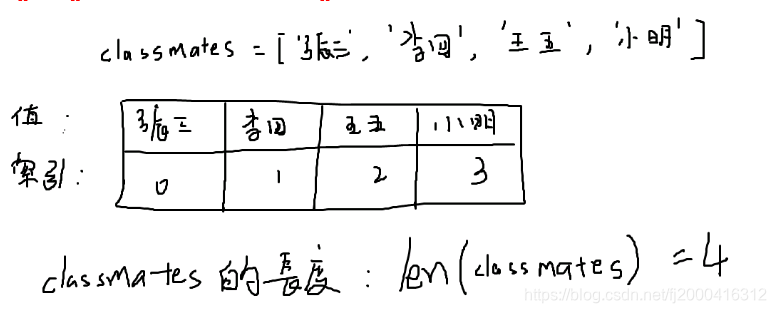 classmates = ['张三', '李四', '王五', '小明']
值: 张三 李四 王五 小明
索引: 0 1 2 3
classmates的长度: len(classmates) = 4
https://blog.csdn.net/fj2000416312